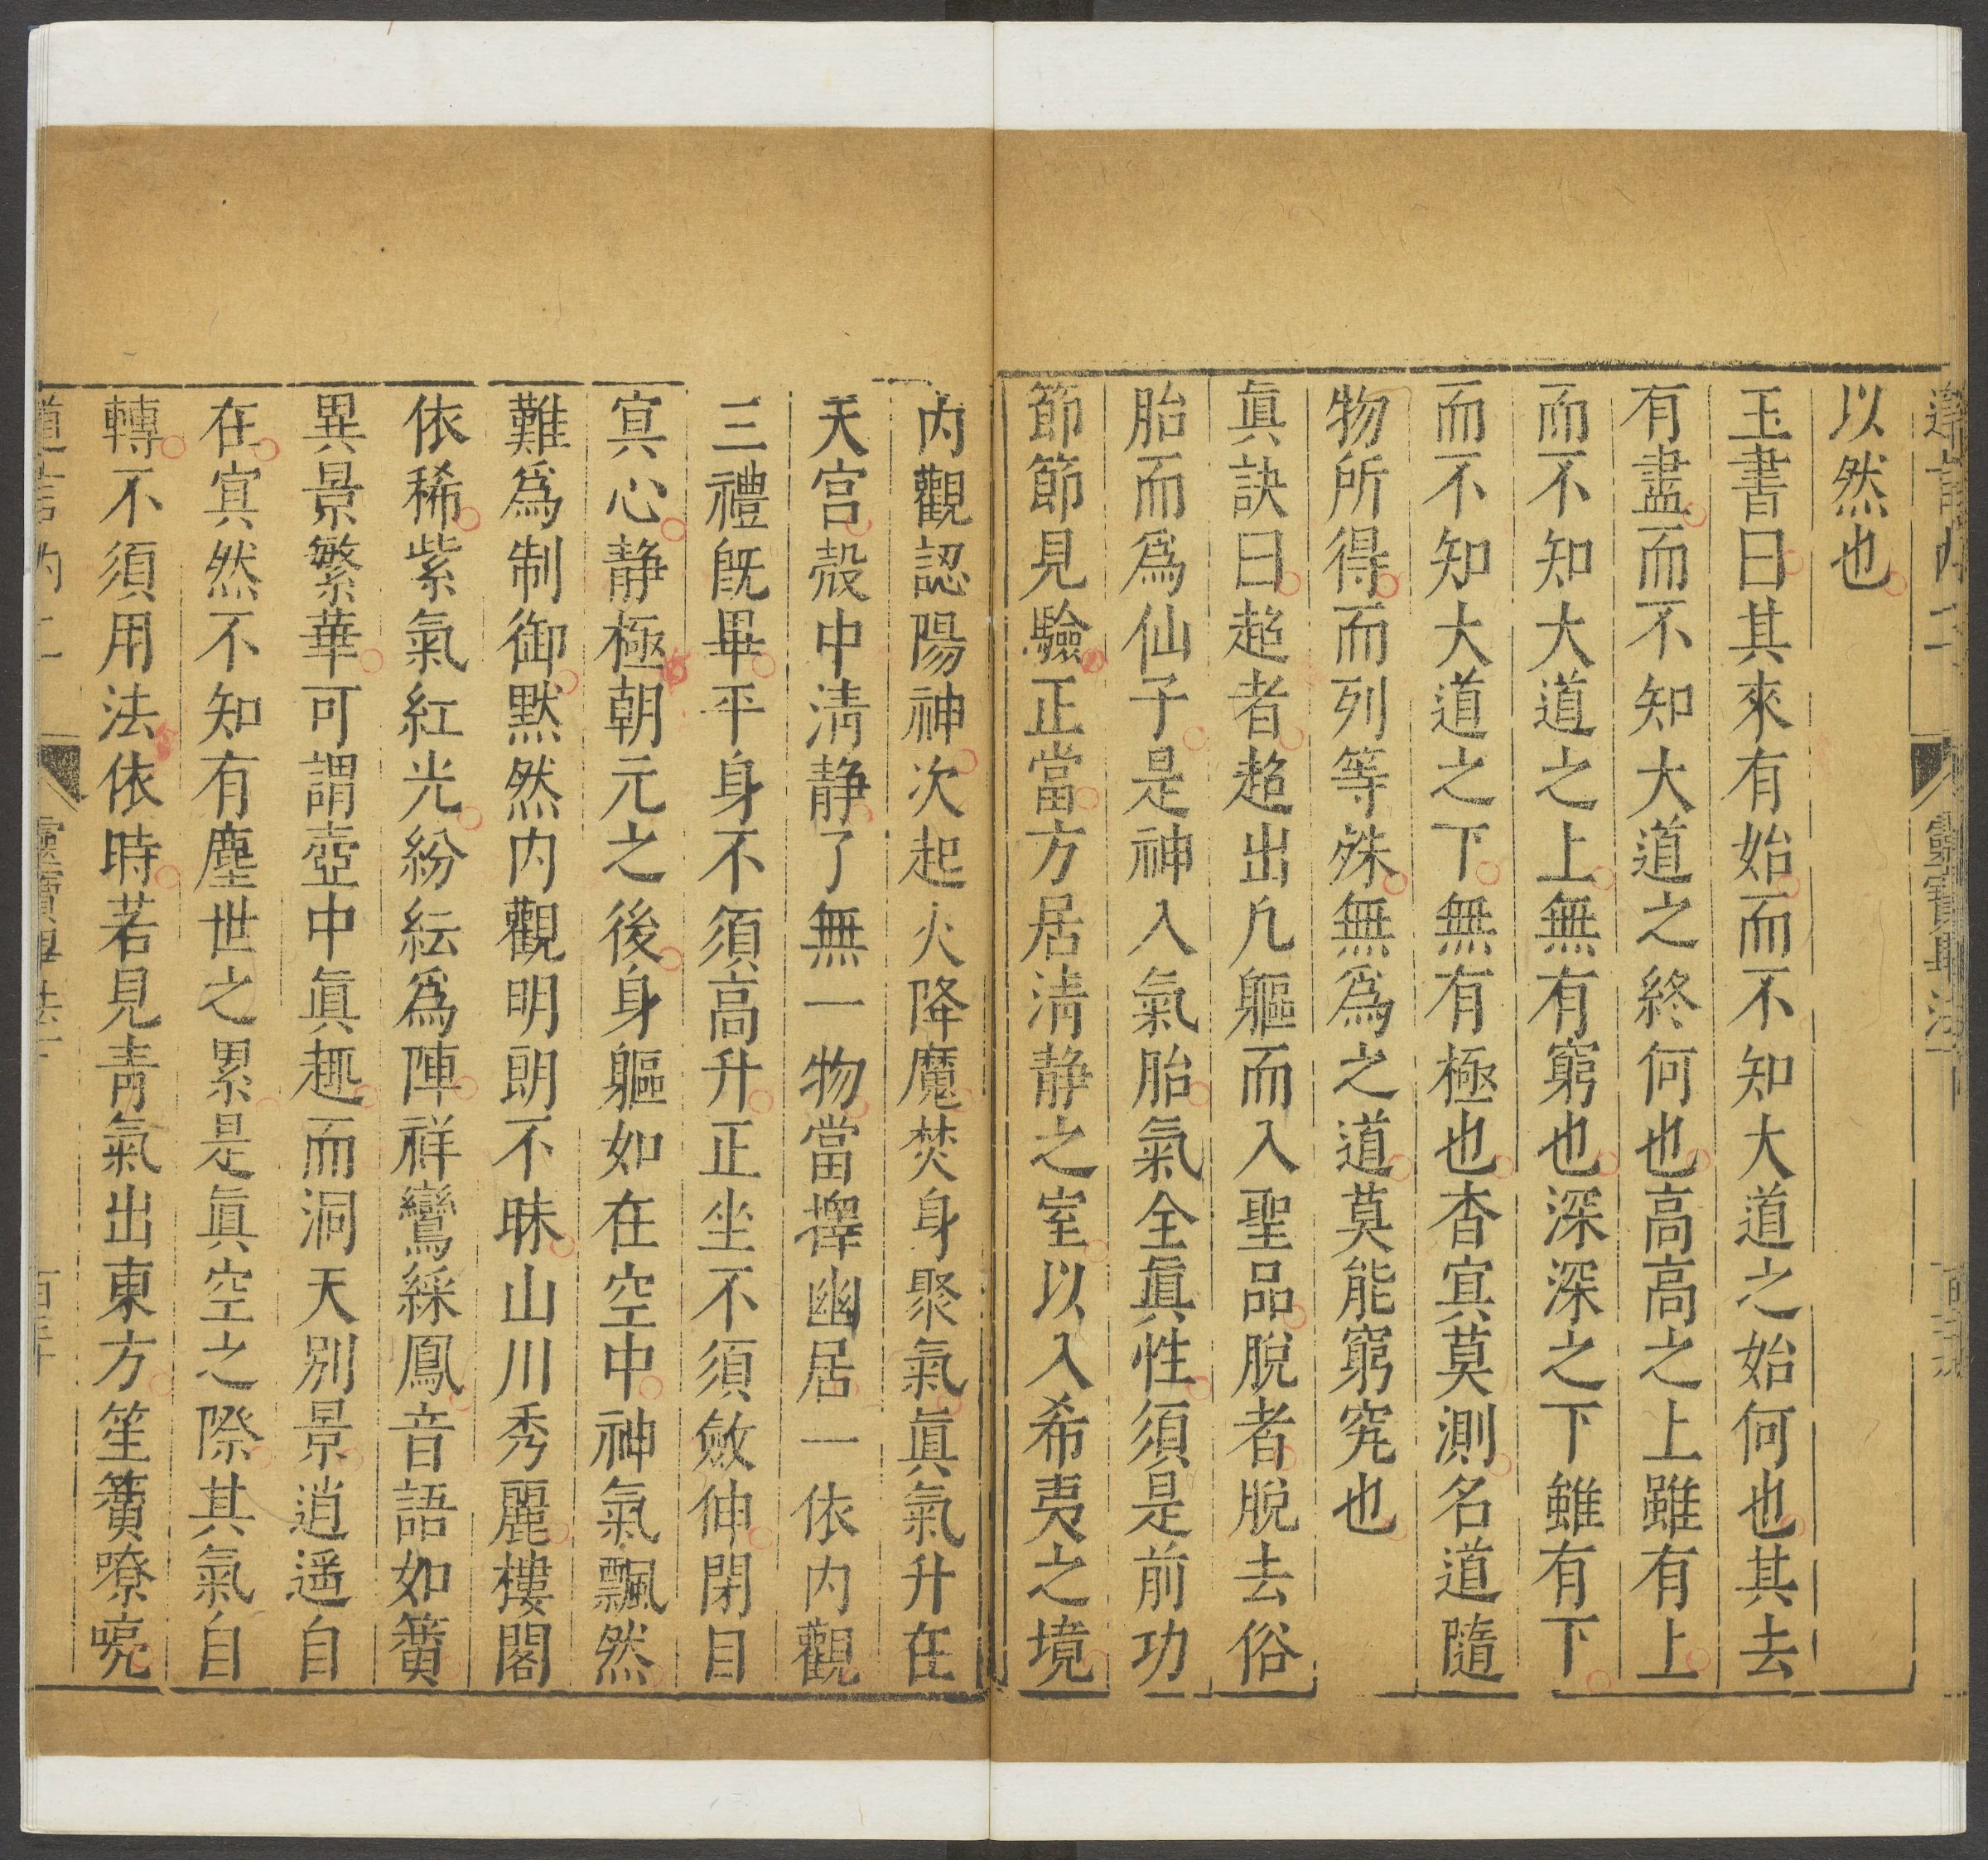 以然也
玉書曰其來有始而不知大道之始何也其去
有盡而不知大道之終何也高高之上雖有上
而不知大道之上無有窮也深深之下雖有下
而不知大道之下無有極也杳冥莫測名道隨
物所得而列等殊無爲之道莫能窮究也
眞訣曰超者超出凡軀而入聖品脫者脫去俗
胎而爲仙子是神入氣胎氣全眞性須是前功
節節見驗正當方居淸静之室以入希夷之境
内觀認陽神次起火降魔焚身聚氣眞氣升在
天宫殼中淸静了無一物當擇幽居一依内觀
三禮旣畢平身不須高升正坐不須斂伸閉目
冥心静極朝元之後身軀如在空中神氣飄然
難爲制御默然内觀明朗不昧山川秀麗樓閣
依稀紫氣紅光紛紜爲陣祥鸞綵鳳音語如簧
異景繁華可謂壺中眞趣而洞天别景逍遥自
在冥然不知有塵世之累是眞空之際其氣自
轉不須用法依時若見靑氣出東方笙簧嘹喨